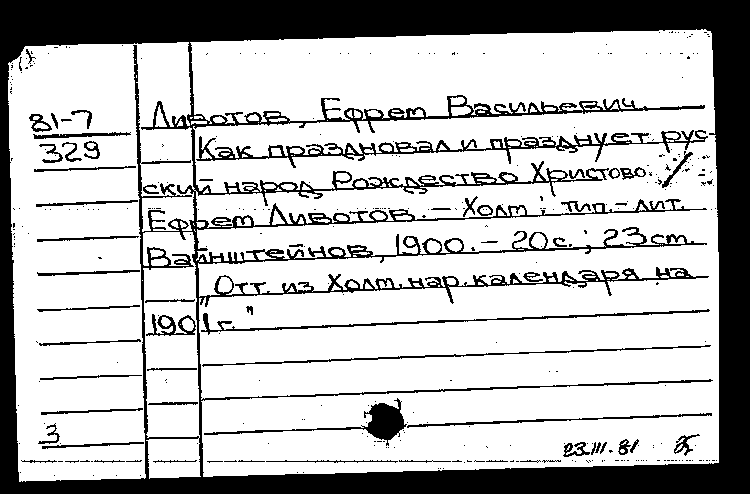 81-7 Ливотов, Ефрем Васильевич.
329 Как праздновал и празднует рус-
ский народ Рождество Христово /
Ефрем Ливотов. - Холм : тип.-лит.
Вайнштейнов, 1900. - 20 с. ; 23 cm.
„Отт. из Холм. нар. календаря на
1901 г."
3
23.III.81